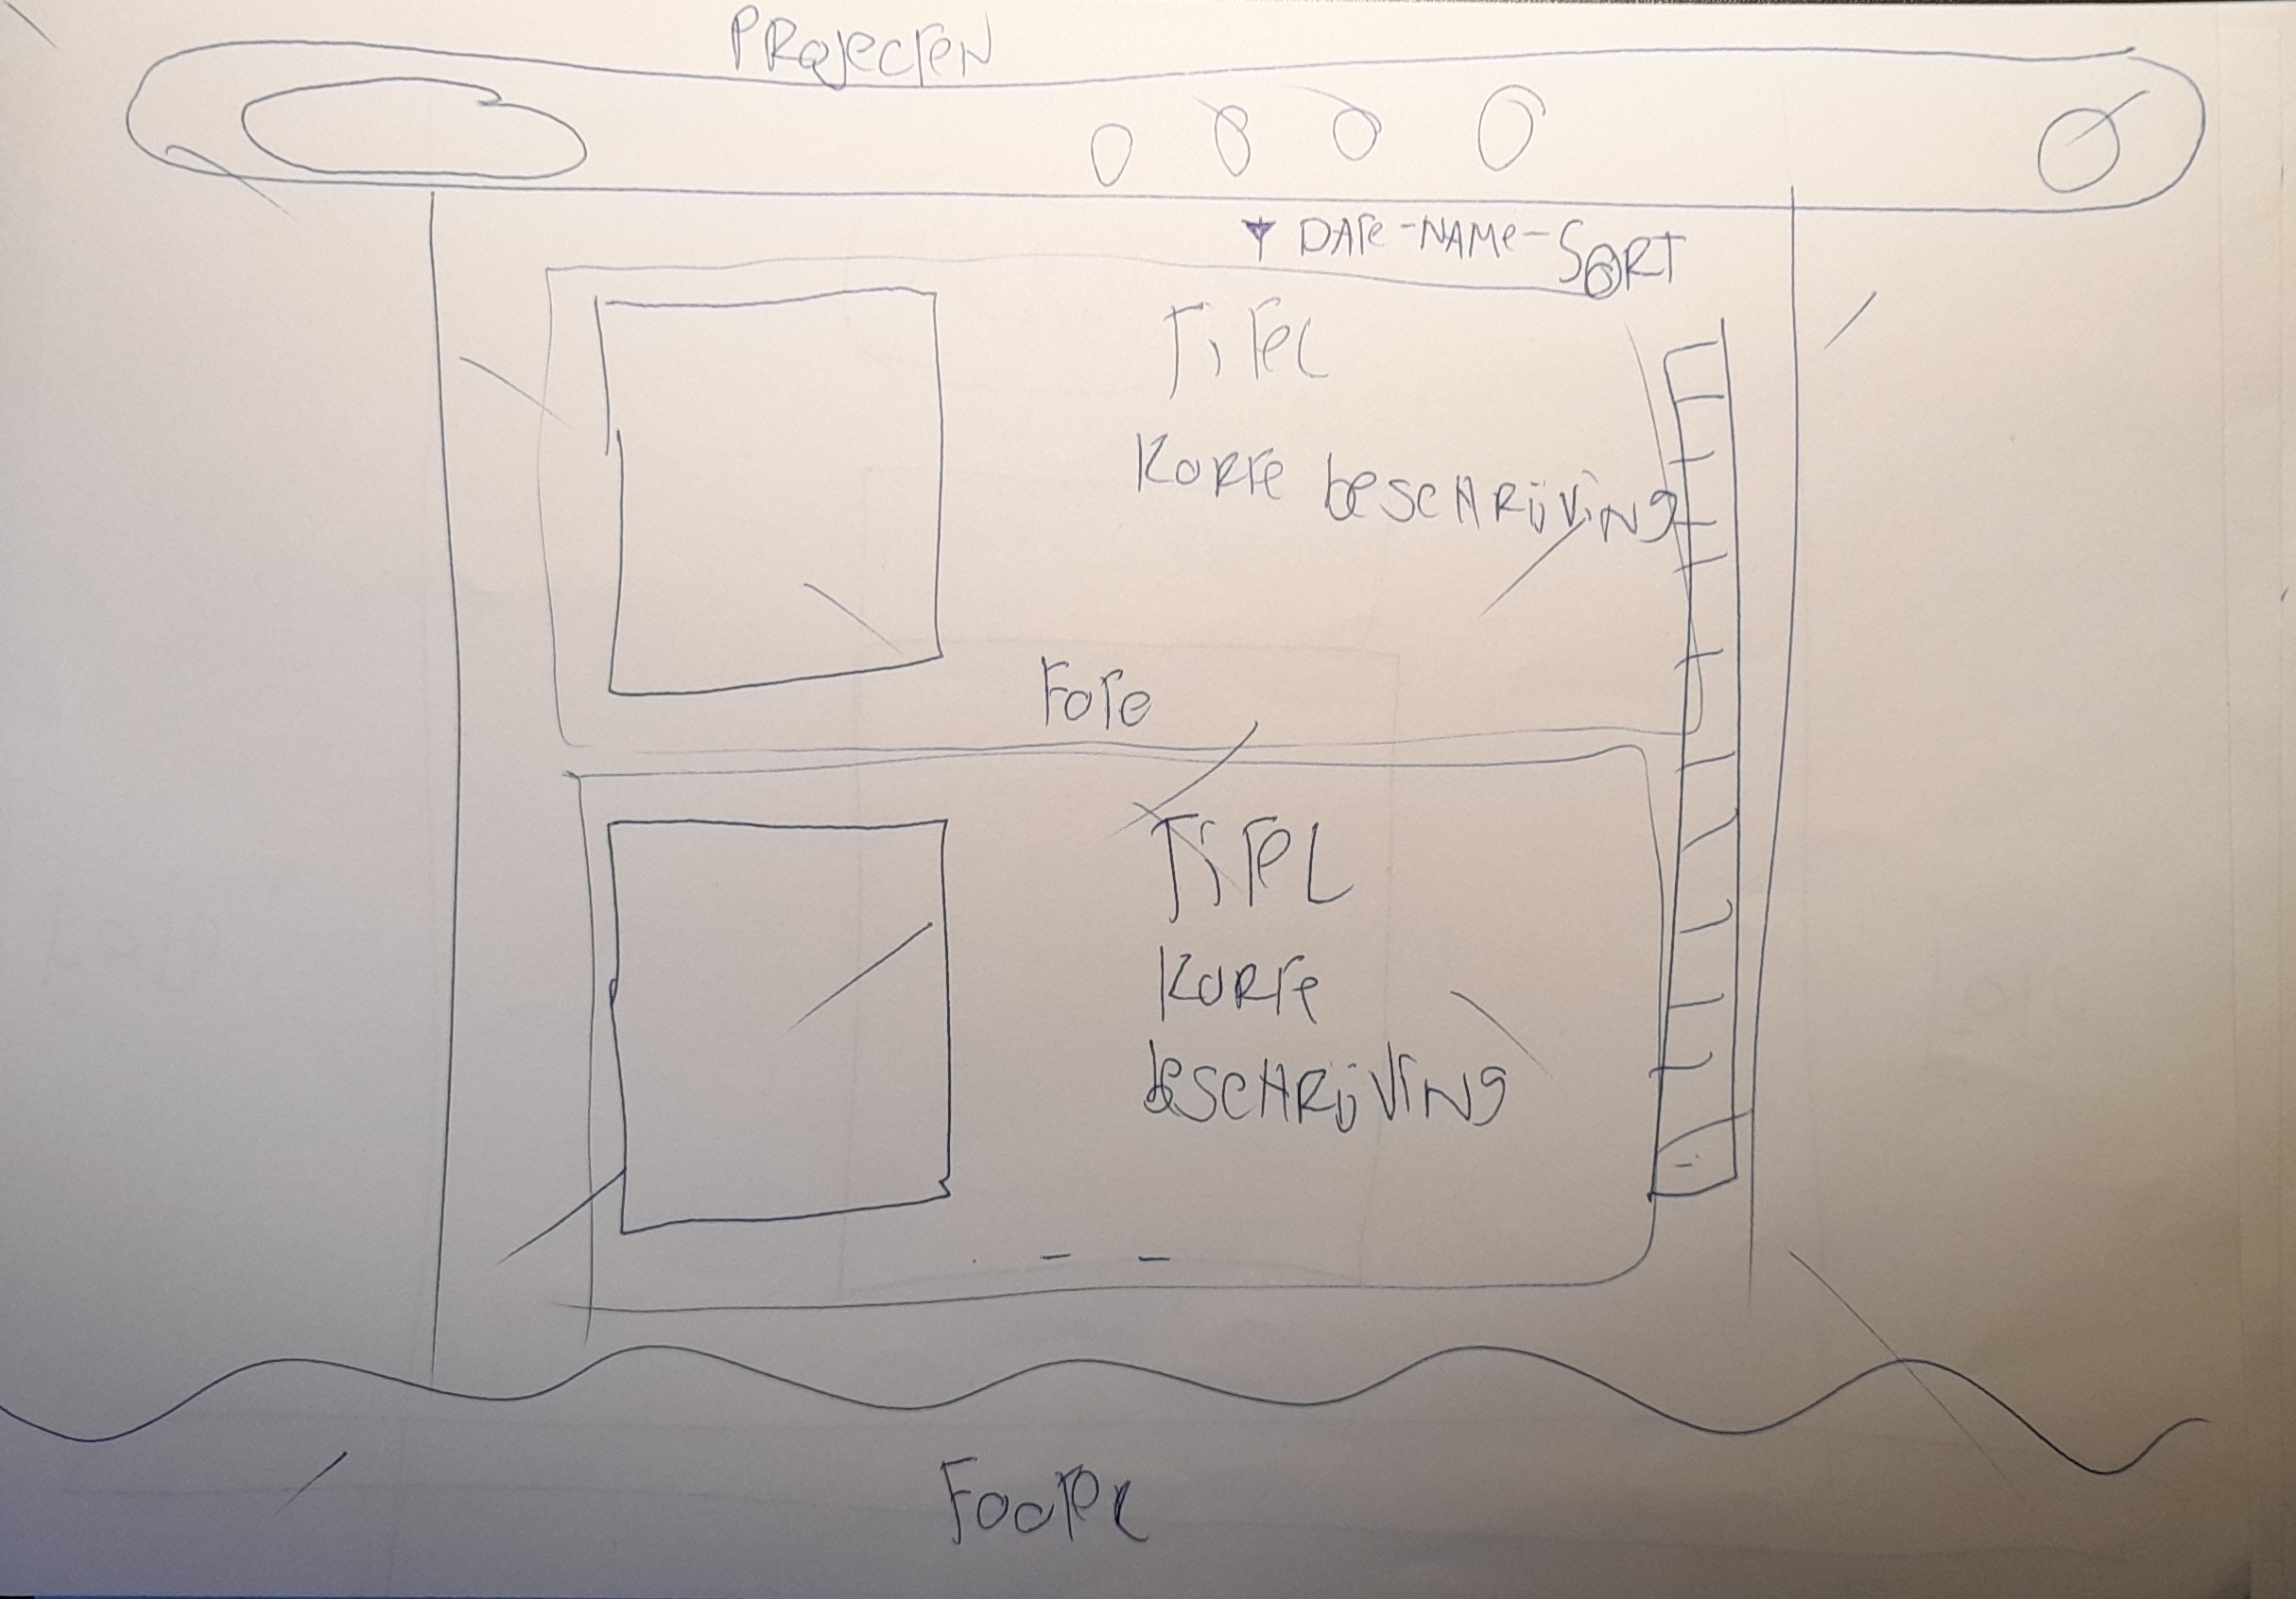 PRojecten
▼ DATe-NAMe-SORT
TiTel
Korte beschrijving
Foto
TiTeL
Korte
beschrijving